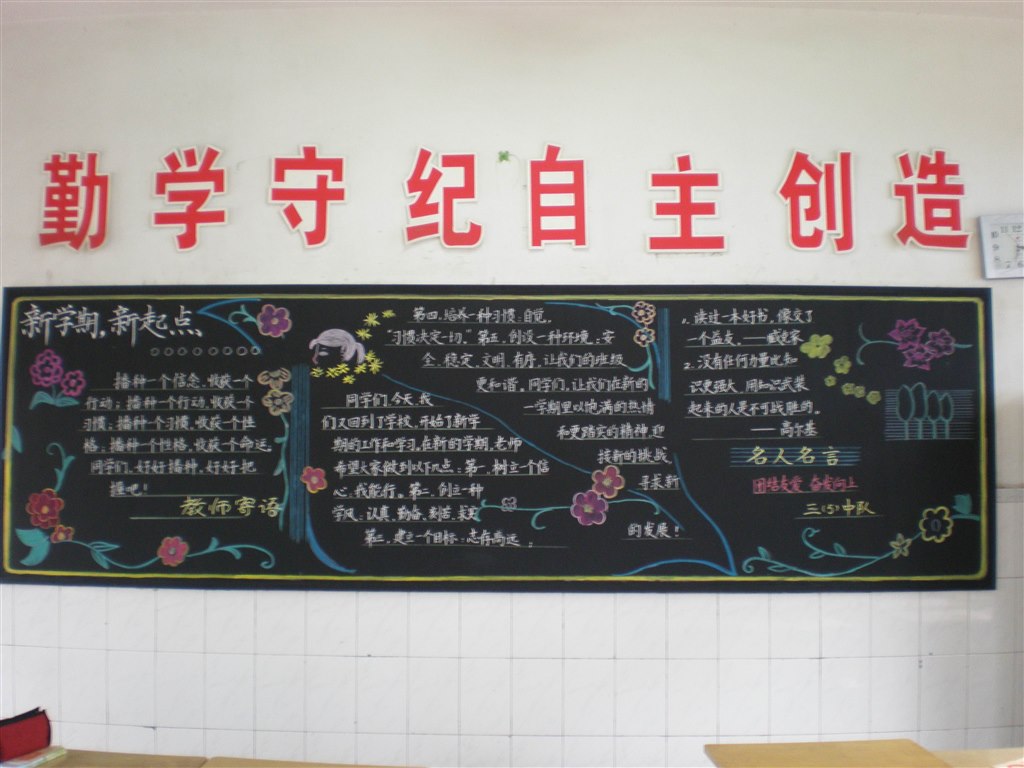 勤学守纪自主创造
新学期,新起点
播种一个信念,收获一个
行动;播种一个行动,收获一个
习惯;播种一个习惯,收获一个性
格;播种一个性格,收获一个命运。
同学们,好好播种,好好把
握吧!
教师寄语
同学们,今天,我
们又回到了学校,开始了新学
期的工作和学习,在新的学期,老师
希望大家做到以下几点:第一,树立一个信
心,我能行。第二,创立一种
学风:认真,勤奋,刻苦,
第三,建立一个目标:志存高远。
第四,培养一种习惯:自觉。
"习惯决定一切。"第五,创设一种环境:安
全,稳定,文明,有序,让我们的班级
更和谐。同学们,让我们在新的
一学期里以饱满的热情
和更踏实的精神,迎
接新的挑战
寻求新
的发展!
1.读过一本好书,像交了
一个益友。——臧克家
2.没有任何力量比知
识更强大,用知识武装
起来的人是不可战胜的。
——高尔基
名人名言
团结友爱 奋发向上
三(5)中队